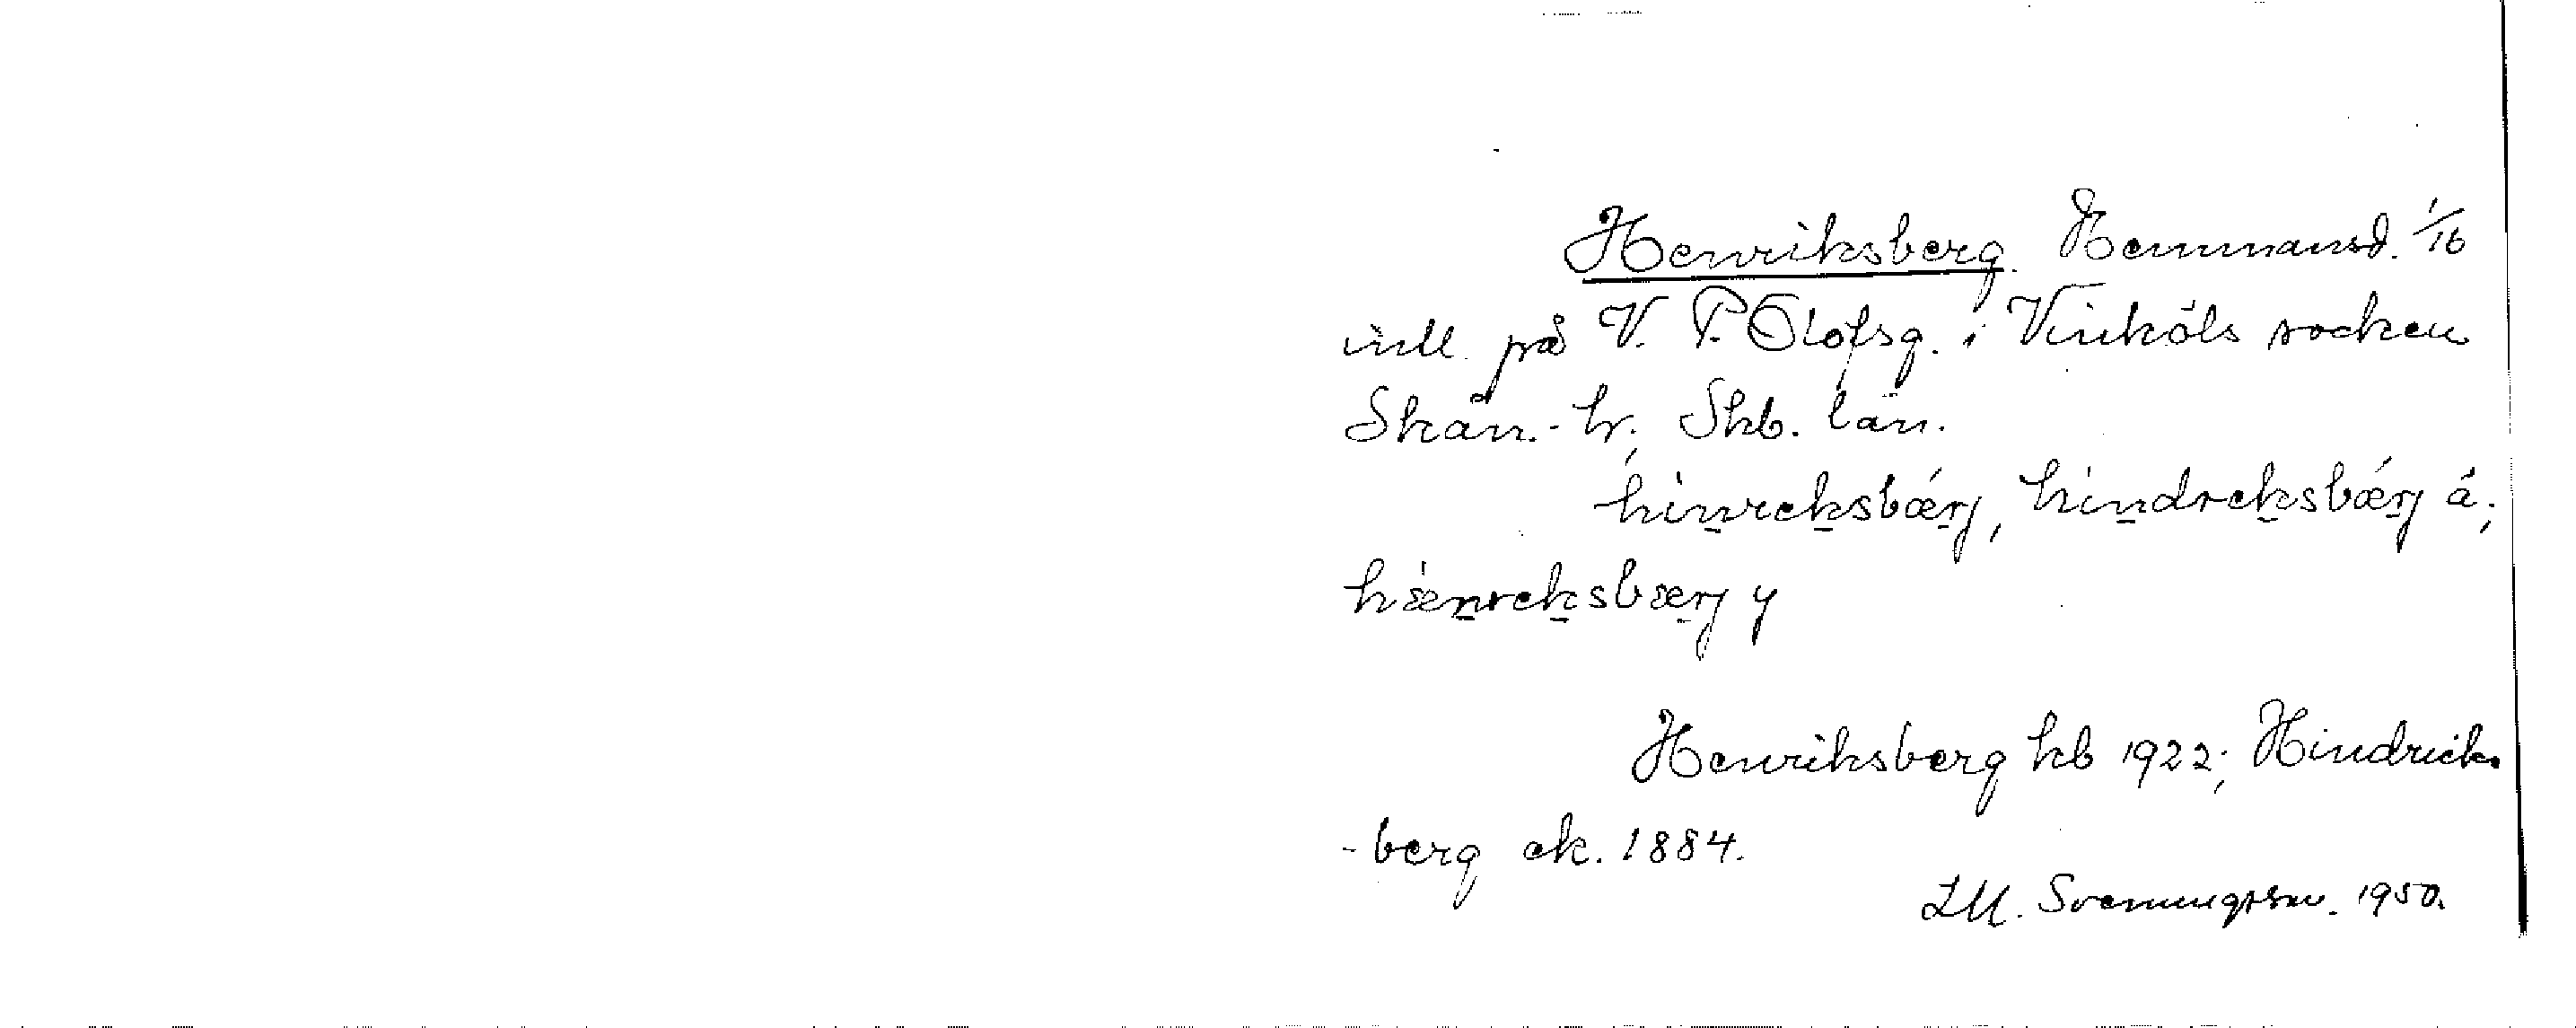 Henriksberg. Hemmansd. 1/16
inll på V. P. Olofsg. i Vinköls socken
Skån.-hr, Skb. län.
hinreksbærj, hindreksbærj ä;
hænreksbærj y
Henriksberg kb 1922; Hindricks
-berg ek. 1884.
I.M. Svenungsson. 1950.